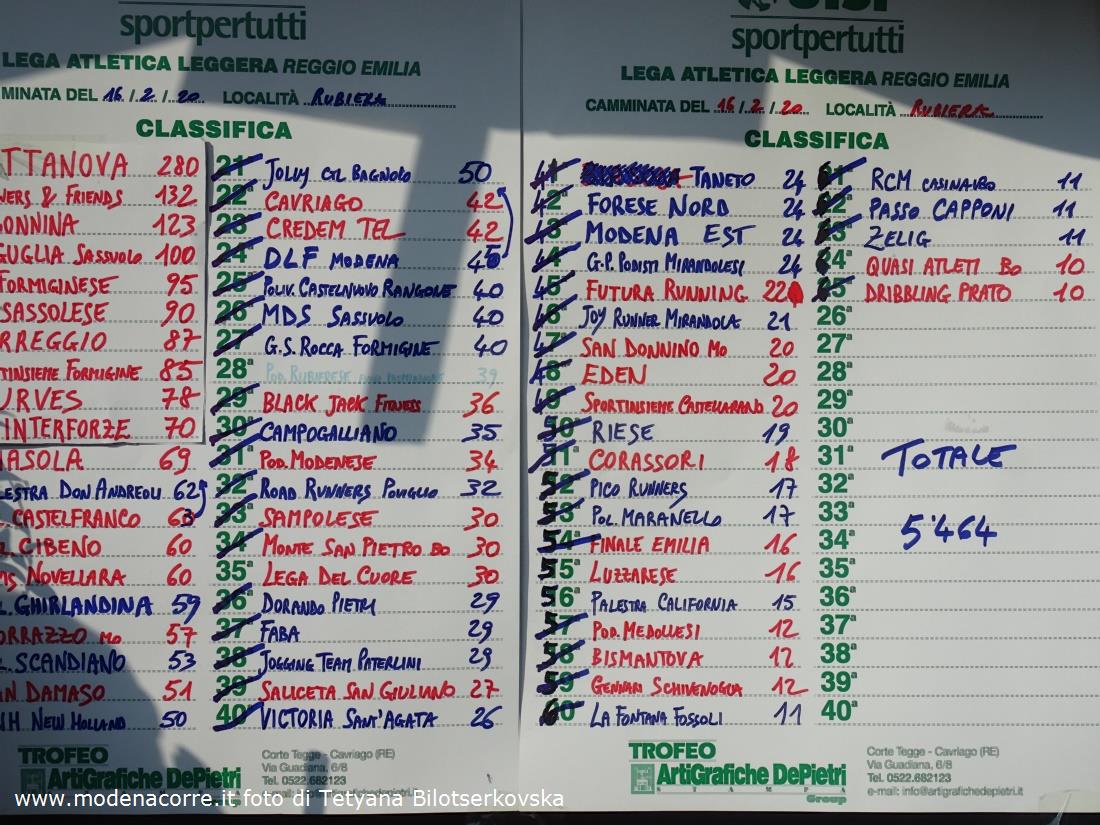 sportpertutti
LEGA ATLETICA LEGGERA REGGIO EMILIA
MINATA DEL 16/2/20 LOCALITÀ RUBIERA
CLASSIFICA
TTANOVA 280
NERS & FRIENDS 132
ONNINA 123
GUGLIA SASSUOLO 100
FORMIGINESE 95
SASSOLESE 90
RREGGIO 87
TINSIEME FORMIGINE 85
URVES 78
INTERFORZE 70
MASOLA 69
LESTRA DON ANDREOLI 62
CASTELFRANCO 63
L. CIBENO 60
MS NOVELLARA 60
L. GHIRLANDINA 59
ORRAZZO MO 57
L. SCANDIANO 53
AN DAMASO 51
NH NEW HOLLAND 50
21ª JOLLY CTL BAGNOLO 50
22ª CAVRIAGO 42
23ª CREDEM TEL 42
24ª DLF MODENA
25ª POLIV. CASTELNUOVO RANGONE 40
26ª MDS SASSUOLO 40
27ª G.S. ROCCA FORMIGINE 40
28ª POD. RUBIERESE 39
29ª BLACK JACK FITNESS 36
30ª CAMPOGALLIANO 35
31ª POD. MODENESE 34
32ª ROAD RUNNERS POVIGLIO 32
33ª SAMPOLESE 30
34ª MONTE SAN PIETRO BO 30
35ª LEGA DEL CUORE 30
36ª DORANDO PIETRI 29
37ª FABA 29
38ª JOGGING TEAM PATERLINI 29
39ª SALICETA SAN GIULIANO 27
40ª VICTORIA SANT'AGATA 26
TROFEO
ArtiGrafiche DePietri
Corte Tegge - Cavriago (RE)
Via Guadiana, 6/8
Tel. 0522.682123
sportpertutti
LEGA ATLETICA LEGGERA REGGIO EMILIA
CAMMINATA DEL 16/2/20 LOCALITÀ RUBIERA
CLASSIFICA
41 TANETO 24
42 FORESE NORD 24
43 MODENA EST 24
44 G.P. PODISTI MIRANDOLESI 24
45 FUTURA RUNNING 22
46 JOY RUNNER MIRANDOLA 21
47 SAN DONNINO MO 20
48 EDEN 20
49 SPORTINSIEME CASTELLARANO 20
50 RIESE 19
51 CORASSORI 18
52 PICO RUNNERS 17
53 POL. MARANELLO 17
54 FINALE EMILIA 16
55 LUZZARESE 16
56 PALESTRA CALIFORNIA 15
57 POD. MEDOLLESI 12
58 BISMANTOVA 12
59 GENNARI SCHIVENOGLIA 12
60 LA FONTANA FOSSOLI 11
61 RCM CASINALBO 11
62 PASSO CAPPONI 11
63 ZELIG 11
64 QUASI ATLETI BO 10
65 DRIBBLING PRATO 10
26ª
27ª
28ª
29ª
30ª
31ª
32ª
33ª
34ª
35ª
36ª
37ª
38ª
39ª
40ª
TOTALE
5'464
TROFEO
ArtiGrafiche DePietri
STAMPA
Group
Corte Tegge - Cavriago (RE)
Via Guadiana, 6/8
Tel. 0522.682123
e-mail: info@artigrafichedepietri.it
www.modenacorre.it foto di Tetyana Bilotserkovska